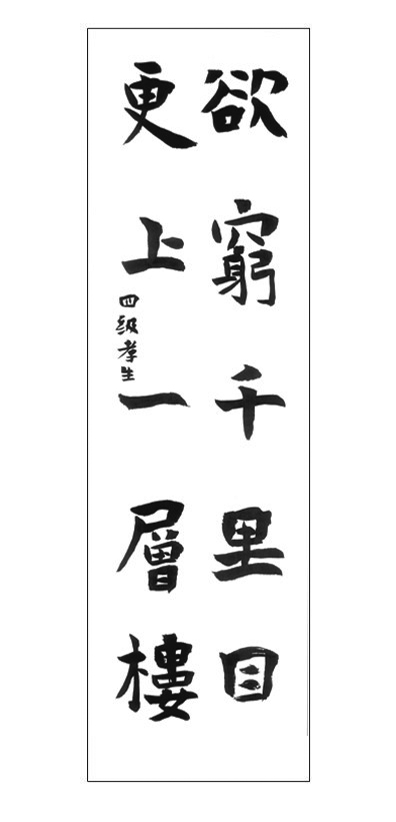 欲窮千里目
更上一層樓
四級孝生